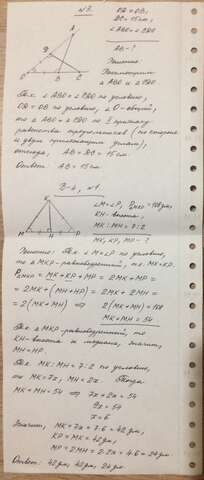 №3.
OD = OB,
DC = 15 см,
∠ABO = ∠CDO
AB - ?
A
D
O
B
C
Решение:
Рассмотрим
△ ABO и △ CDO
Т.к. ∠ABO = ∠CDO по условию,
OD = OB по условию, ∠O - общий,
то △ABO = △CDO по II признаку
равенства треугольников (по стороне
и двум прилежащим углам),
отсюда, AB = DC = 15 см.
Ответ: AB = 15 см.
В-4, №1.
K
M
H
P
∠M = ∠P,
KH - высота,
MK : MH = 7:2
MK, KP, MP - ?
Решение: Т.к. ∠M = ∠P по условию,
то △MKP - равнобедренный, т.е. MK = KP.
= 2MK + (MH + HP) = 2MK + 2MH =
= 2(MK + MH) ⇒ 2(MK + MH) = 108
MK + MH = 54
Т.к. △MKP - равнобедренный, то
KH - высота и медиана, значит,
MH = HP.
Т.к. MK : MH = 7:2 по условию,
то MK = 7x, MH = 2x. Тогда
MK + MH = 54 ⇒ 7x + 2x = 54
9x = 54
x = 6
Значит, MK = 7x = 7·6 = 42 дм,
KP = MK = 42 дм,
MP = 2MH = 2·2x = 4·6 = 24 дм
Ответ: 42 дм, 42 дм, 24 дм.